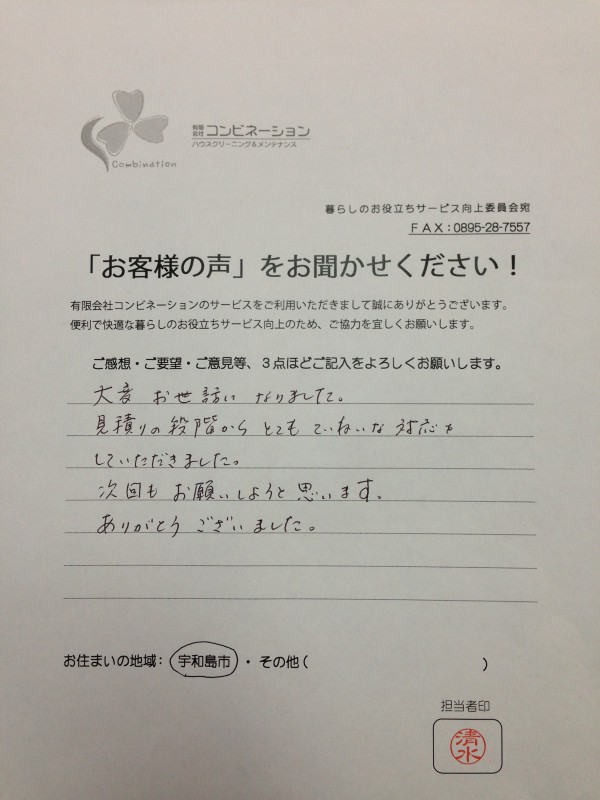 Combination
有限会社 コンビネーション
ハウスクリーニング&メンテナンス
暮らしのお役立ちサービス向上委員会宛
FAX:0895-28-7557
「お客様の声」をお聞かせください!
有限会社コンビネーションのサービスをご利用いただきまして誠にありがとうございます。
便利で快適な暮らしのお役立ちサービス向上のため、ご協力を宜しくお願いします。
ご感想・ご要望・ご意見等、3点ほどご記入をよろしくお願いします。
大変 お世話に なりました。
見積りの段階から とても ていねいな 対応を
していただきました。
次回も お願いしようと 思います。
ありがとう ございました。
お住まいの地域: 宇和島市 ・ その他( )
担当者印
清水